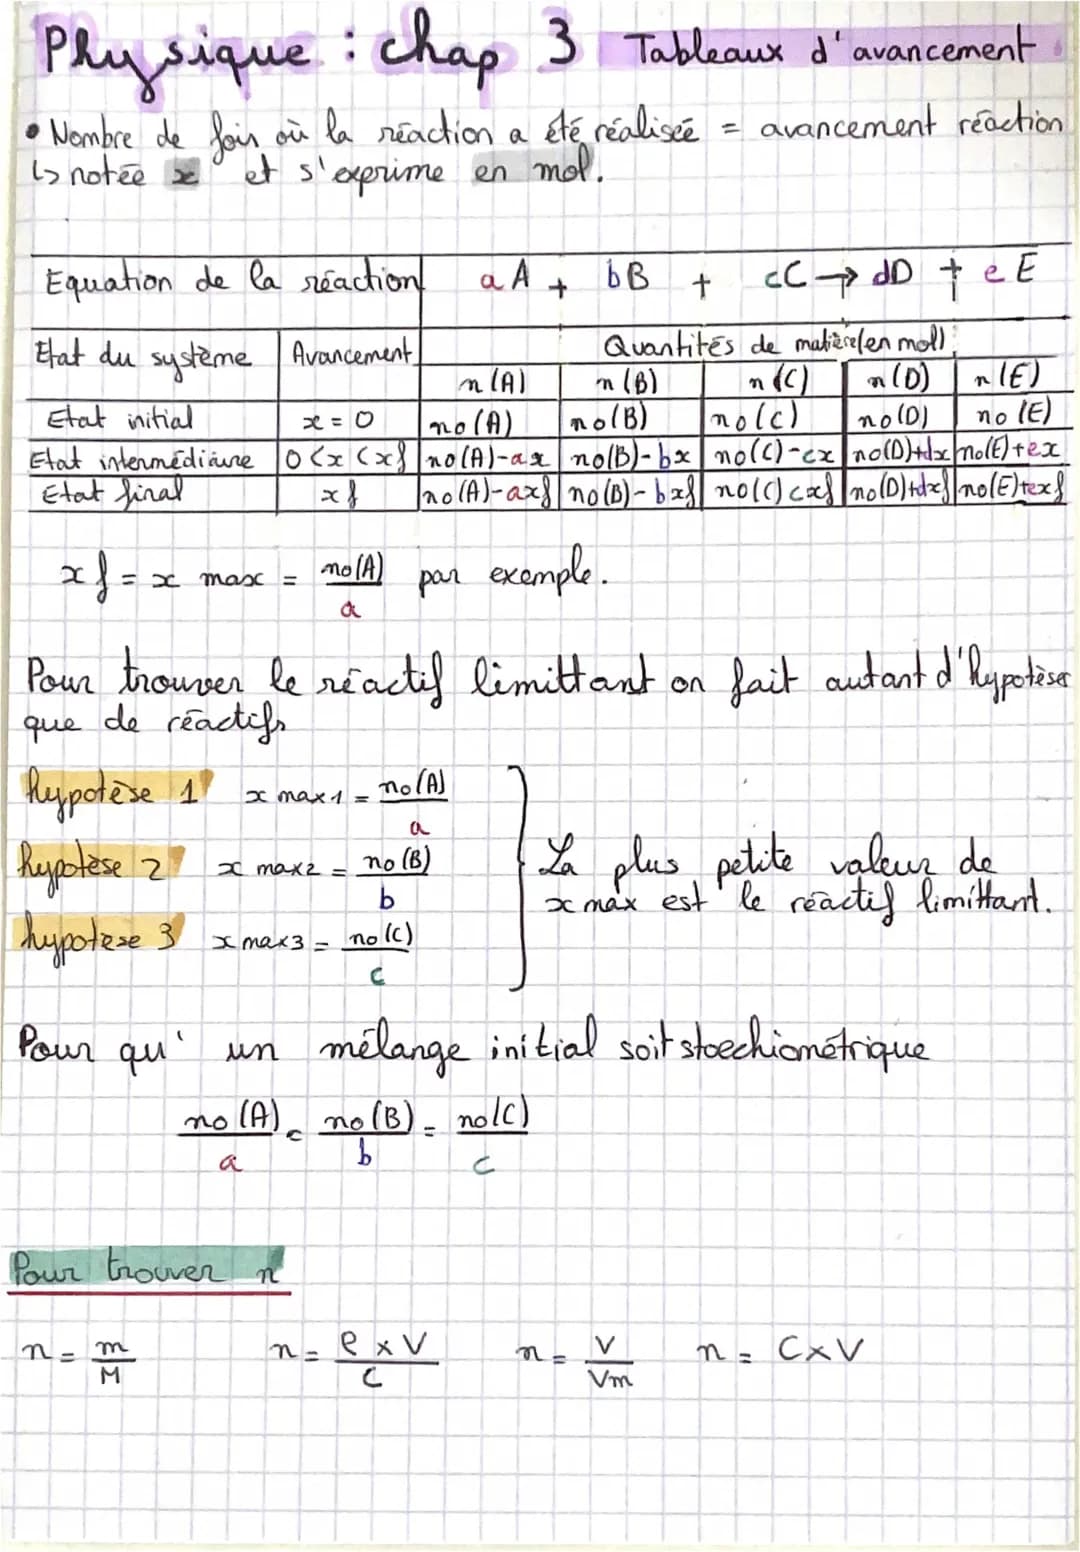 Physique : chap 3 Tableaux d'avancement
• Nombre de fois où la réaction a été réalisée = avancement réaction
↳ notée x et s'exprime en mol.
Equation de la réaction aA + bB + cC → dD + eE
Etat du système Avancement Quantités de matière (en mol) :
n(A) n(B) n(C) n(D) n(E)
Etat initial x = 0 no(A) no(B) no(c) no(D) no(E)
Etat intermédiaire 0<x<xf no(A)-ax no(B)-bx no(C)-cx no(D)+dx no(E)+ex
Etat final xf no(A)-axf no(B)-bxf no(C) cxf no(D)+dxf no(E)+exf
xf = x max = no(A)/a par exemple.
Pour trouver le réactif limittant on fait autant d'hypotèses
que de réactifs
hypotèse 1 x max1 = no(A)/a
hypotèse 2 x max2 = no(B)/b
hypotèse 3 x max3 = no(C)/c
La plus petite valeur de
x max est le réactif limittant.
Pour qu'un mélange initial soit stoechiométrique
no(A)/a = no(B)/b = no(C)/c
Pour trouver n
n = m/M n = ρ x V/C n = V/Vm n = C x V